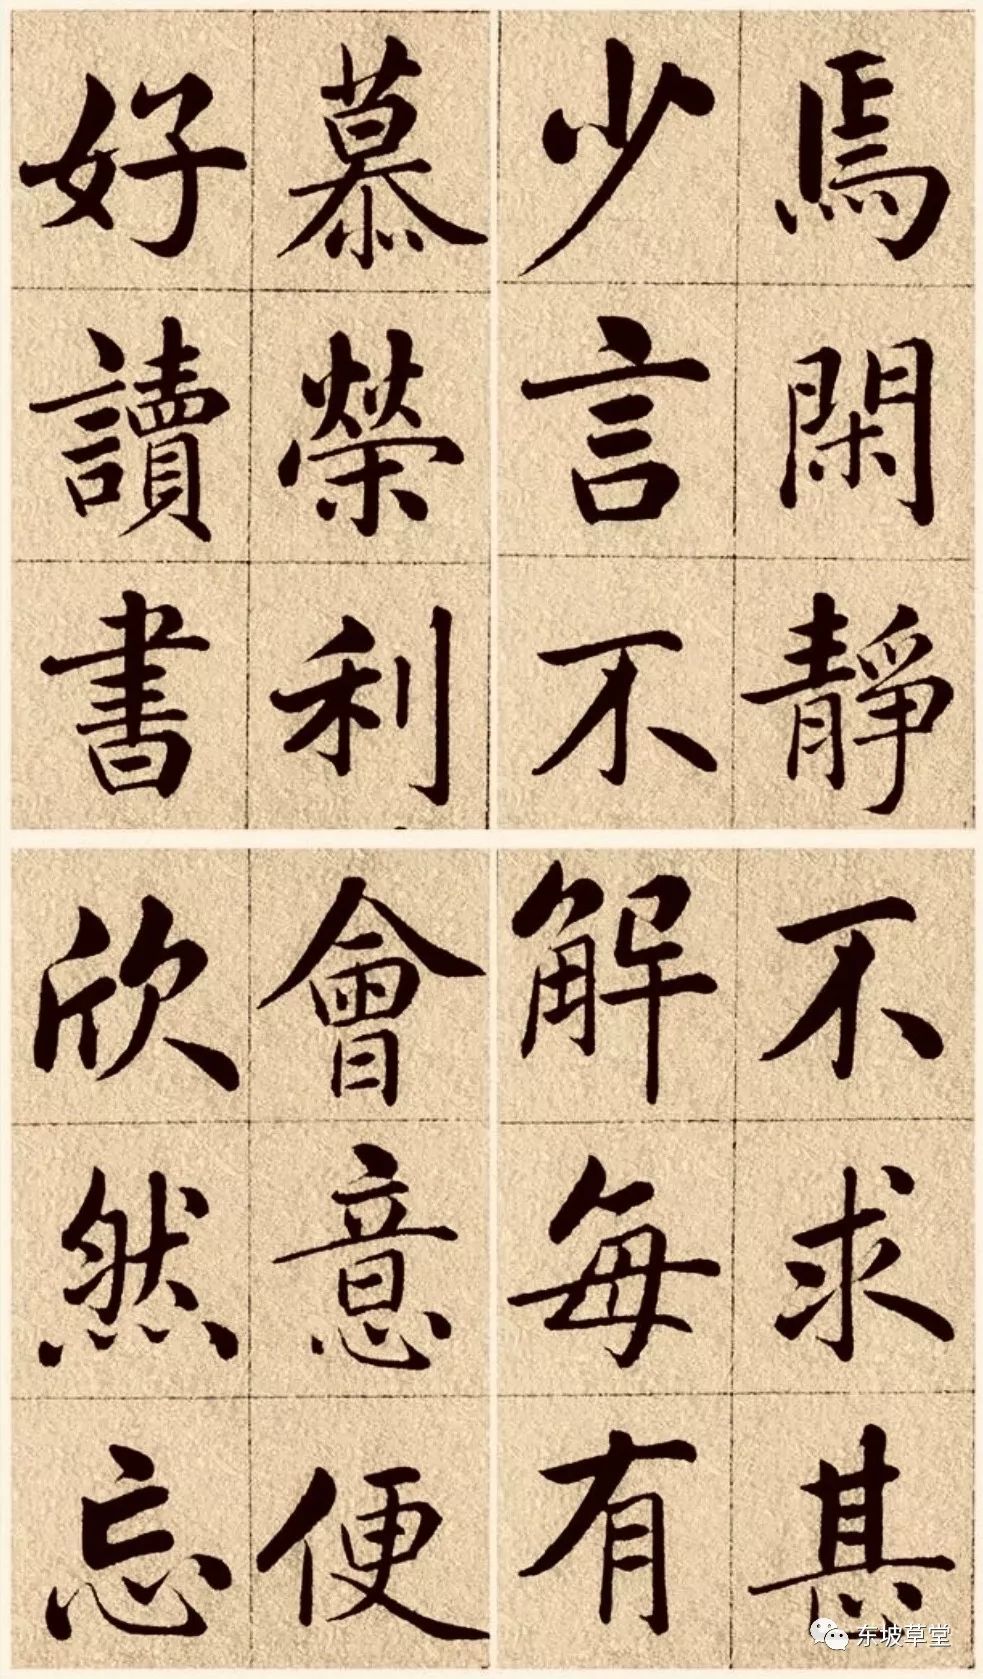 焉閑靜
少言不
慕榮利
好讀書
不求甚
解每有
會意便
欣然忘
东坡草堂